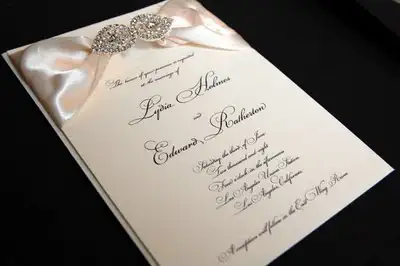 The honour of your presence is requested
at the marriage of
Lydia Holmes
and
Edward Ratherton
Saturday the third of June
Two thousand and eight
Four o'clock in the afternoon
Los Angeles Union Station
Los Angeles, California
A reception will follow in the East Wing Room